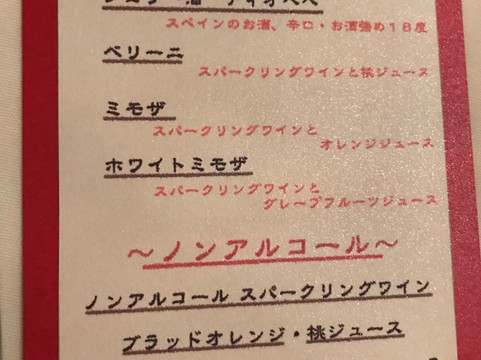 シェリー酒 ティオペペ
スペインのお酒、辛口・お酒強め18度
ベリーニ
スパークリングワインと桃ジュース
ミモザ
スパークリングワインと
オレンジジュース
ホワイトミモザ
スパークリングワインと
グレープフルーツジュース
～ノンアルコール～
ノンアルコール スパークリングワイン
ブラッドオレンジ・桃ジュース